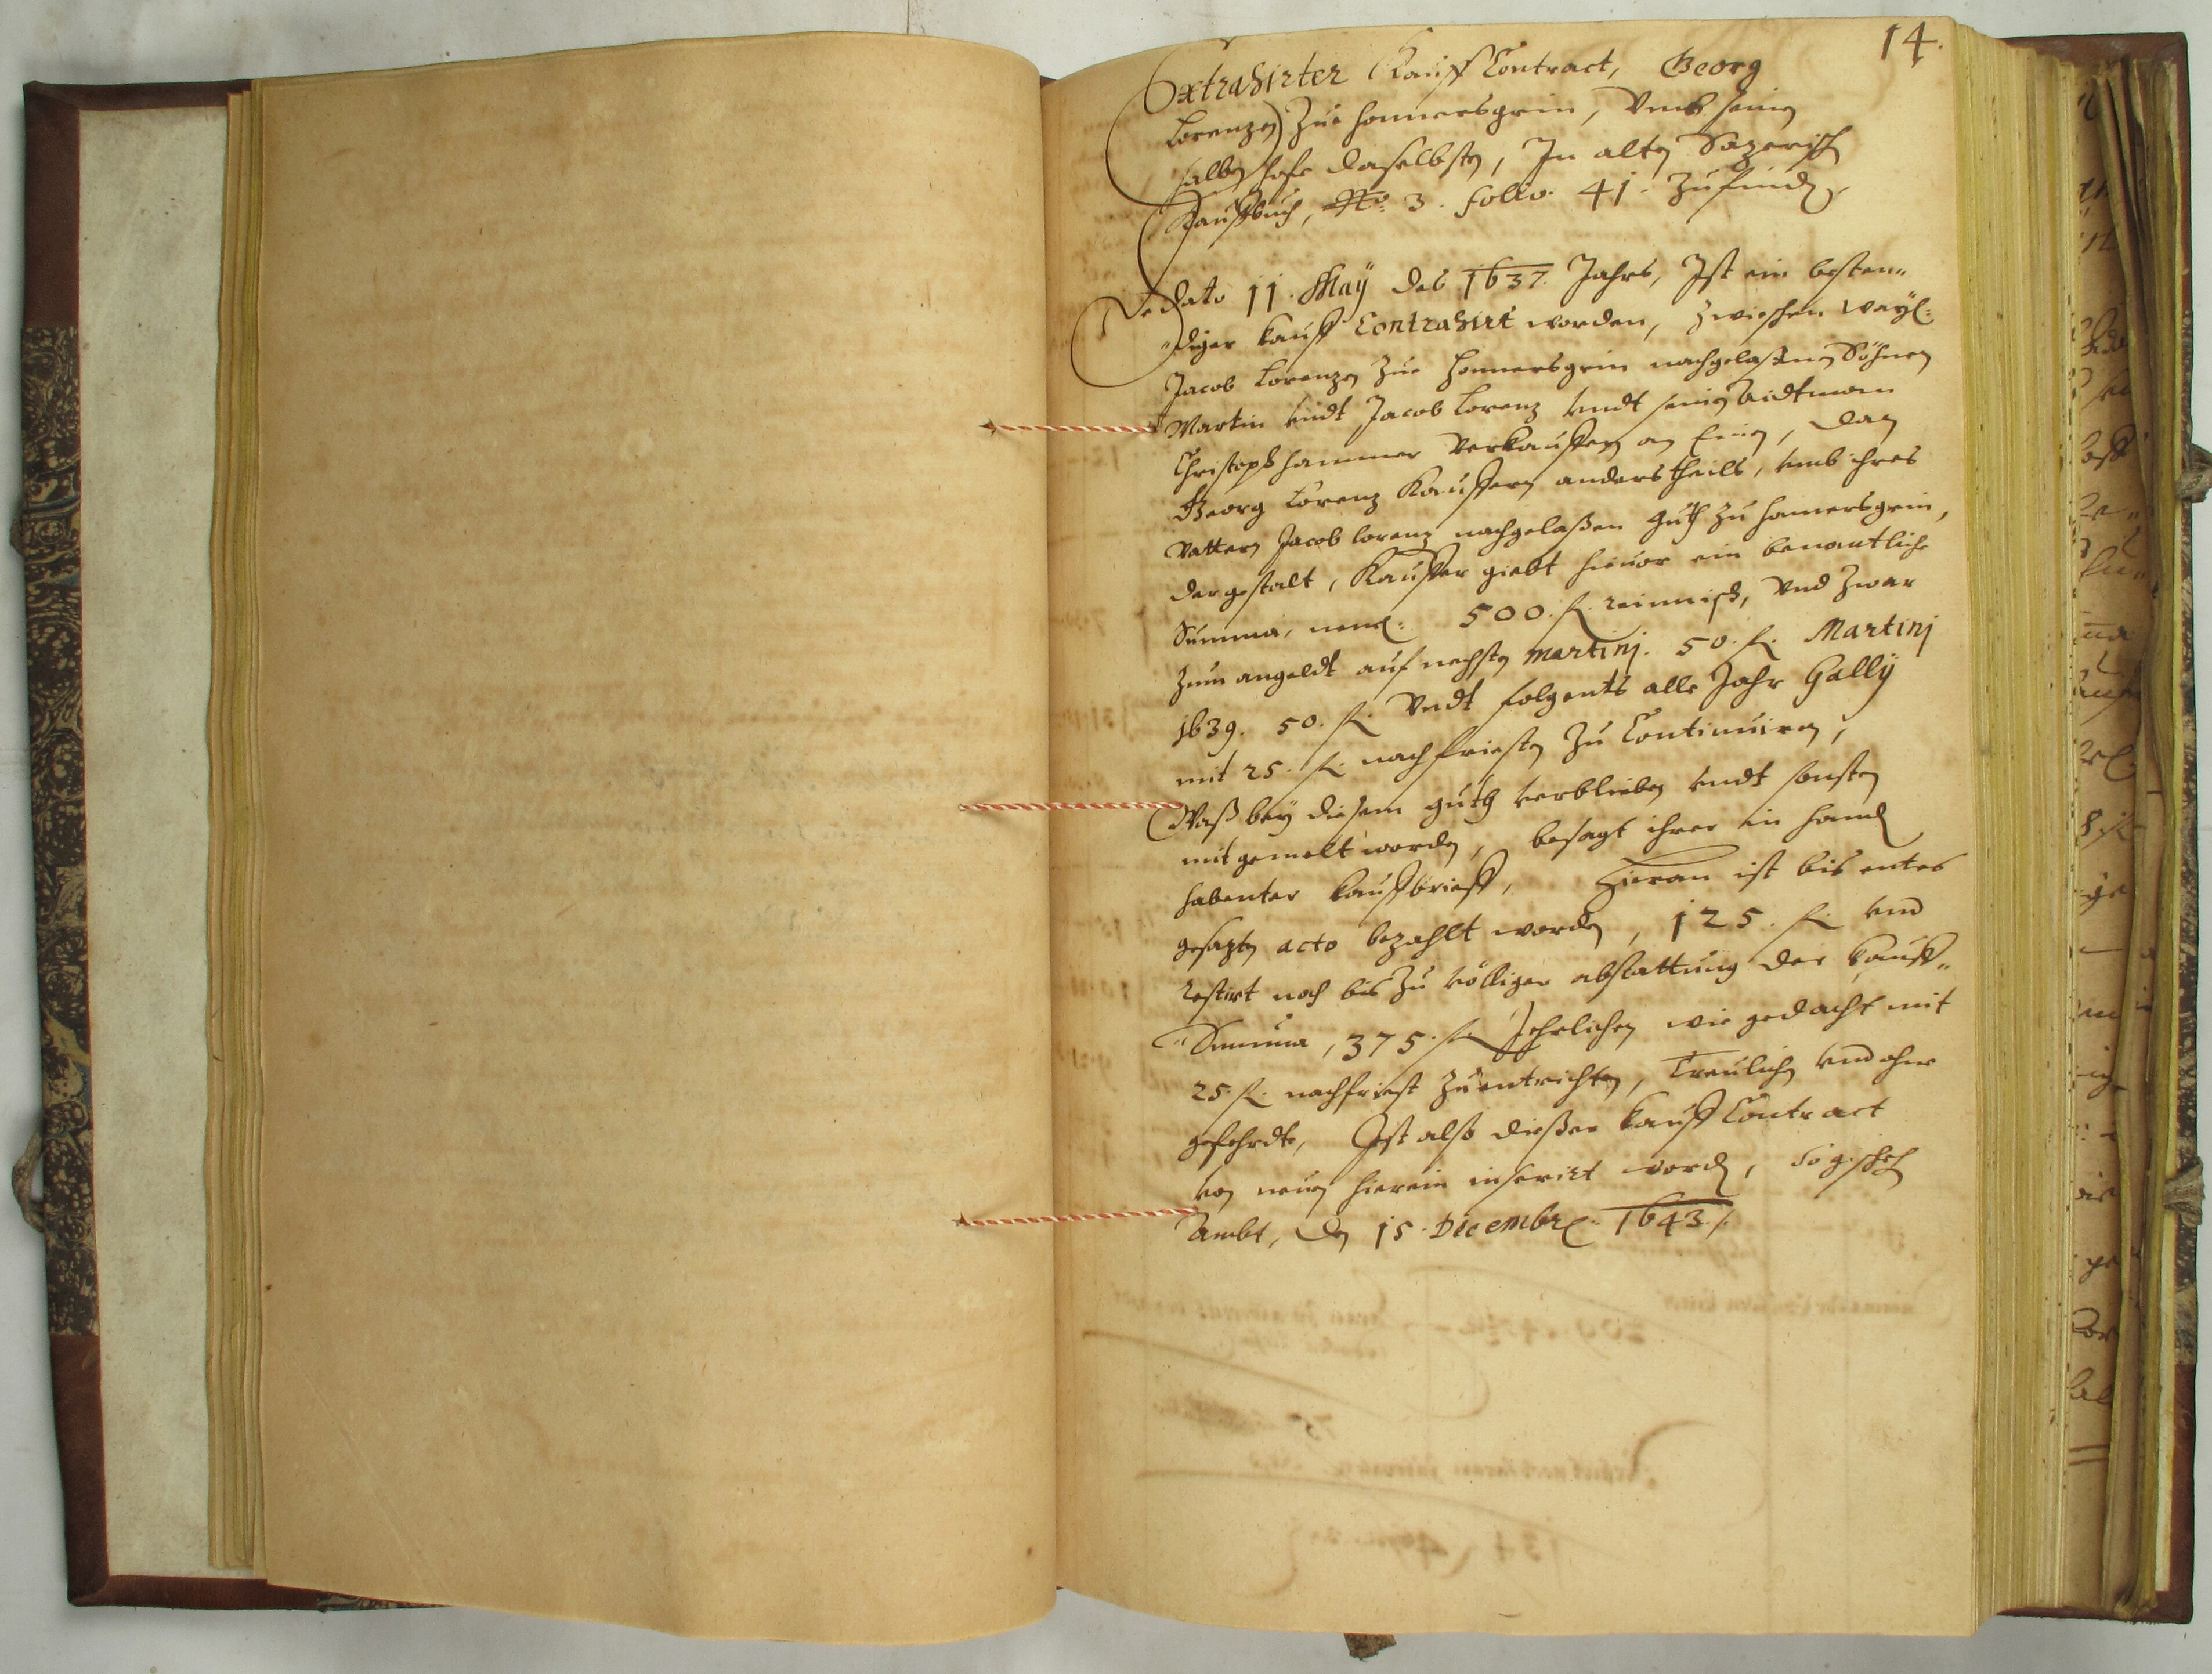 14.
Extrahirter Kauff Contract, Georg
Lorenzen Zue Honnersgrin, Vmb seinen
halben hofe daselbsten, In alten
Kauffbuch, No. 3. Folio. 41. Zufinden,
De dato 11. Maÿ des 1637. Jahrs, Ist ein besten"
"diger kauff Contrahirt worden, Zwischen weÿl:
Jacob Lorenzen Zue Honnersgrin nachgelaßenen Söhnen
Martin vndt Jacob Lorenz vndt seinen Aidtmann
Christoph hammer Verkauffern an Einen, dan
Georg Lorenz Kauffern anders theils, vmb ihres
Vattern Jacob lorenz nachgelaßen Guth zu honnersgrin,
dergestalt, Kauffer giebt hieuor ein benantliche
Summa, neml: 500. fl. reinnisch, Vnd Zwar
Zum angeldt auf nechsten Martinj. 50. fl. Martinj
1639. 50. fl. Vndt folgents alle Jahr Gallÿ
mit 25. fl. nachfriesten Zu Continuiren,
Waß beÿ diesem guth verblieben vndt sonsten
mit gemelt worden, besagt ihrer in handt
habenter kauffbrieff, Hieran ist bis entes
gesazten acto bezahlt worden, 125. fl. vnd
restirt noch bis Zu völliger abstattung der kauff"
"Summa, 375. fl. Jehrlichen wie gedacht mit
25. fl. nachfriest Zuentrichten, Treulich vnd ohne
gefehrdte, Ist also dießer kauff Contract
von neuen hierein inserirt worden,
Ambt, den 15. Decembr. 1643./.